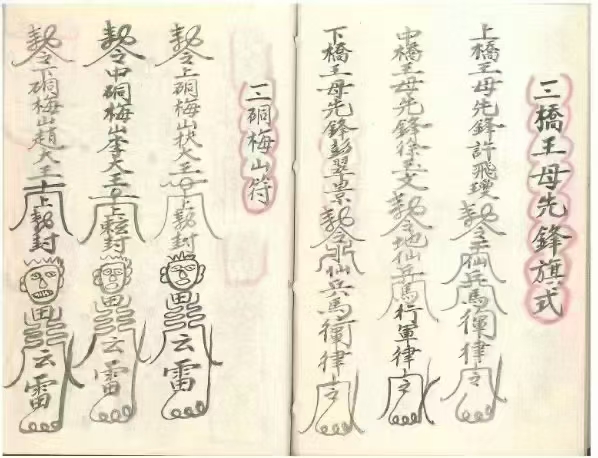 三橋王母先鋒旗式
上橋王母先鋒許飛瓊勅令天仙兵馬衙律令
中橋王母先鋒徐玉文勅令地仙兵馬行軍律令
下橋王母先鋒彭翠雲勅令水仙兵馬衙律令
三硐梅山符
勅令上硐梅山扶大王上勅封
田云雷
勅令中硐梅山李大王上勅封
田云雷
勅令下硐梅山趙大王上勅封
田云雷